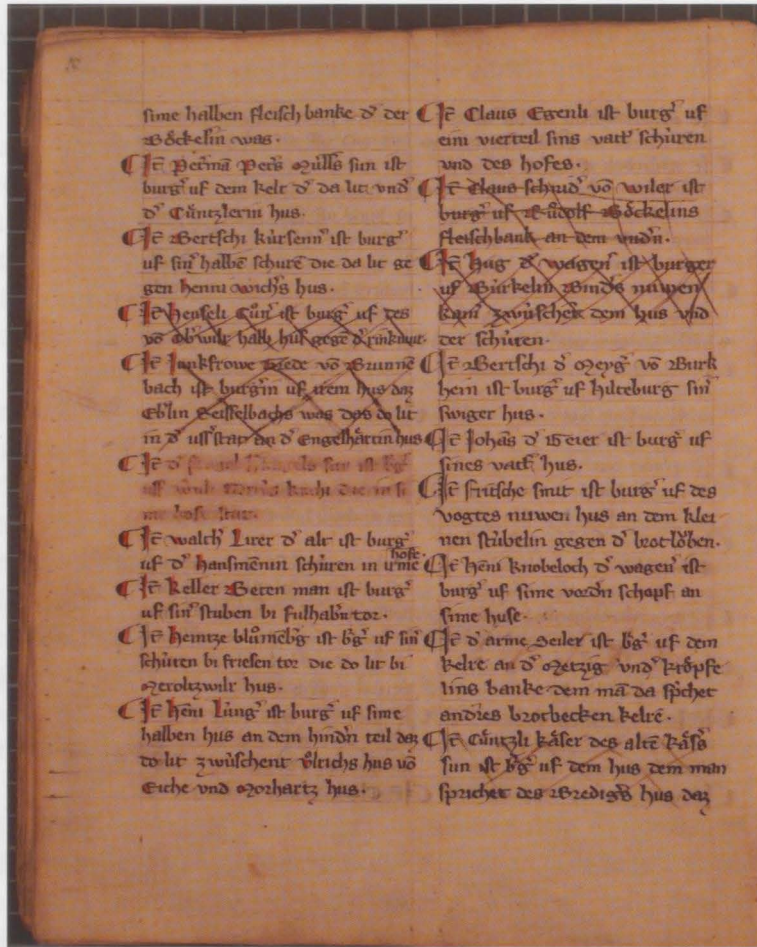 sime halben fleisch banke d᷑ der
Bo̊ckelin was.
Itē Petmā Pet᷑s Mu̍ll᷑s sun ist
burg᷑ uf dem kelr d᷑ da lit und᷑
d᷑ Cu̍ntzlerin hus.
Itē Bertschi ku̍rsenn᷑ ist burg᷑
uf sin᷑ halbē schurē die da lit ge
gen henni wich᷑s hus.
Itē Henseli ist burg᷑ uf des
vō wilr halb hus gegē d᷑
Itē Junkfrowe vō Brunne
bach ist burg᷑in uf irem hus daz
Eb᷑lin was das do lit
in d᷑ uss᷑stat an d᷑ Engelhartin hus
Itē d᷑ sun ist b᷑g᷑
Itē walth᷑ Lirer d᷑ alt ist burg᷑
uf d᷑ hansmēnin schu̍ren in irme hofe.
Itē Keller Beten man ist burg᷑
uf sin᷑ stuben bi fulhab᷑n tor.
Itē Heintze blůmēb᷑g ist b᷑g᷑ uf sin᷑
schu̍ren bi friesen tor die do lit bi
Meroltzwilr hus.
Itē Heni Lu̍ng᷑ ist burg᷑ uf sime
halben hus an dem hind᷑n teil daz
do lit zwu̍schent Ůlrichs hus vō
Eiche und Morhartz hus.
Itē Claus Egenli ist burg᷑ uf
eim vierteil sins vatt᷑ schu̍ren
und des hofes.
Itē Claus schnid᷑ vō wiler ist
burg᷑ uf Růdolf Bo̊ckelins
fleischbank an dem und᷑n.
Itē Hug d᷑ wagen᷑ ist burger
uf Bu̍rkelin Bind᷑s nuwen
zwu̍schen dem hus und
der schu̍ren.
Itē Bertschi d᷑ Meyg᷑ vō Burk
hein ist burg᷑ uf hilteburg sin᷑
swiger hus.
Itē Johās d᷑ ist burg᷑ uf
sines vatt᷑ hus.
Itē fritsche smit ist burg᷑ uf des
vogtes nuwen hus an dem klei
nen stu̍belin gegen d᷑ brotlo̍ben.
Itē Heni knobeloch d᷑ wagen᷑ ist
burg᷑ uf sime vord᷑n schopf an
sime huse.
Itē d᷑ arme Seiler ist b᷑g᷑ uf dem
kelre an d᷑ Metzig und᷑ kro̍pfe
lins banke dem mā da sp᷑chet
andres brotbecken kelre.
Itē Cu̍ntzli ka̍ser des altē ka̍s᷑s
sun ist b᷑g᷑ uf dem hus dem man
sprichet des Bredig᷑s hus daz